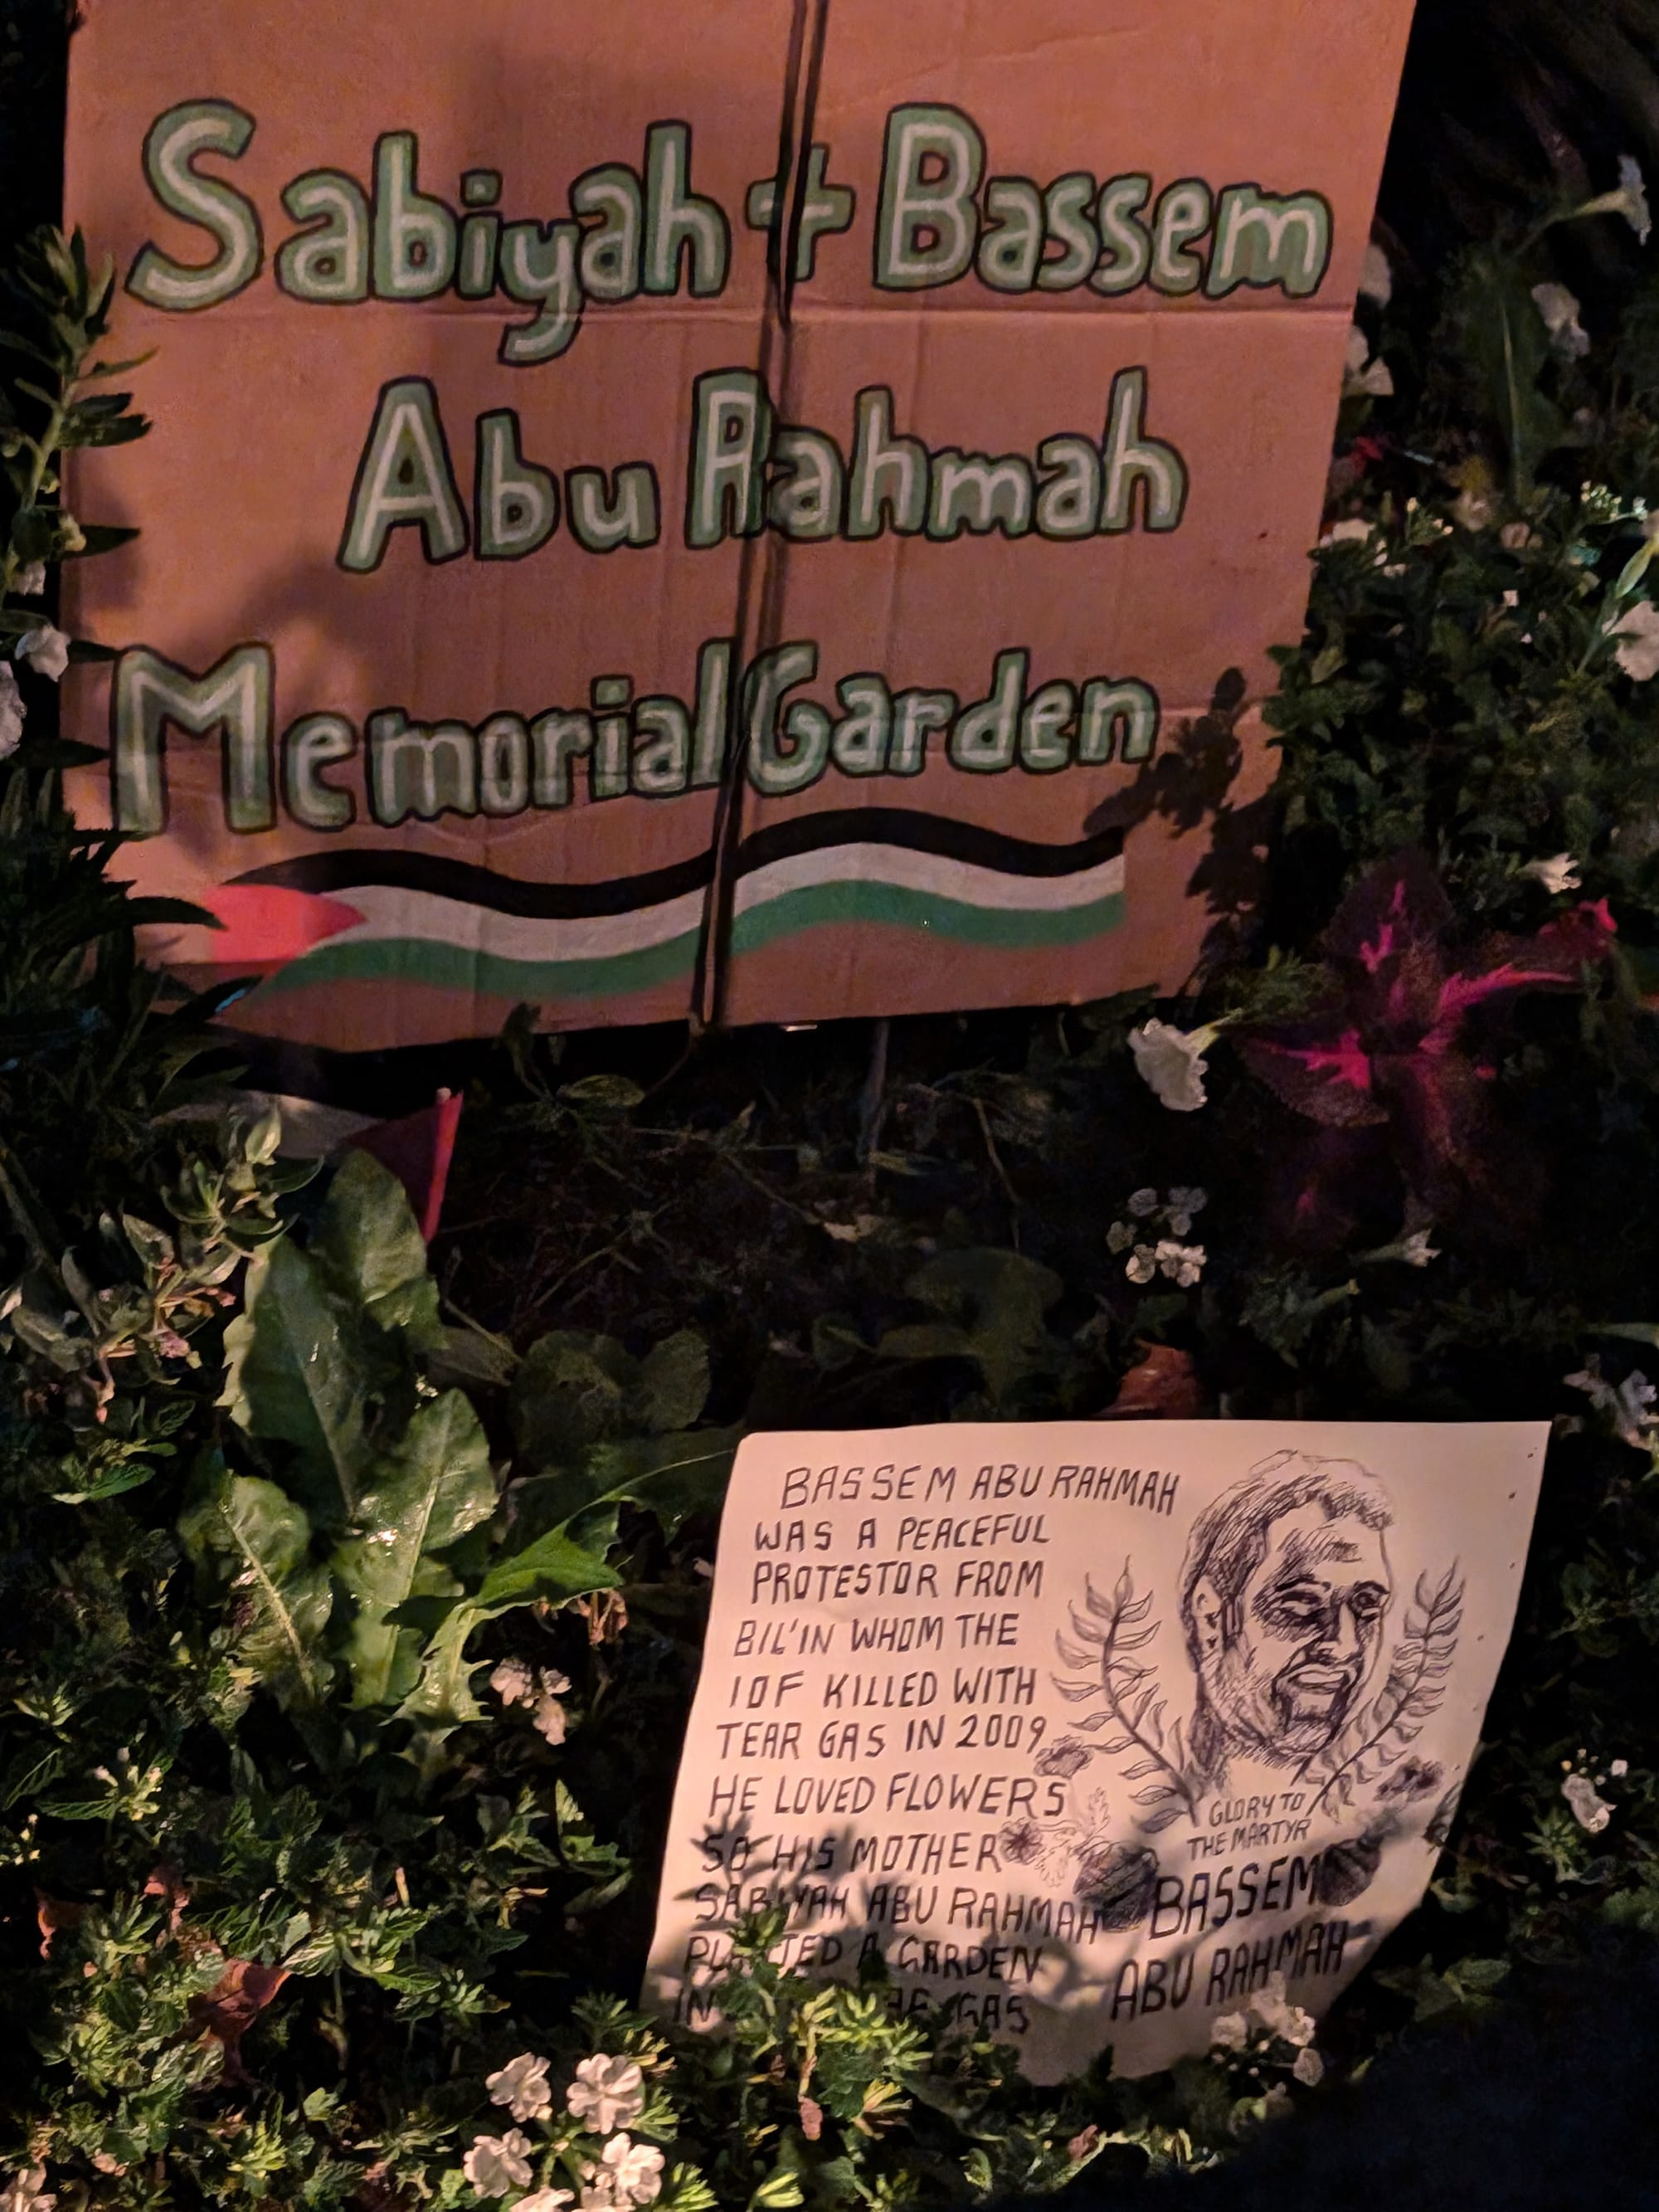 Sabiyah + Bassem
Abu Rahmah
Memorial Garden
BASSEM ABU RAHMAH
WAS A PEACEFUL
PROTESTOR FROM
BIL'IN WHOM THE
IOF KILLED WITH
TEAR GAS IN 2009
HE LOVED FLOWERS
SO HIS MOTHER
SABIYAH ABU RAHMAH
PLANTED A GARDEN
IN GAS
GLORY TO
THE MARTYR
BASSEM
ABU RAHMAH